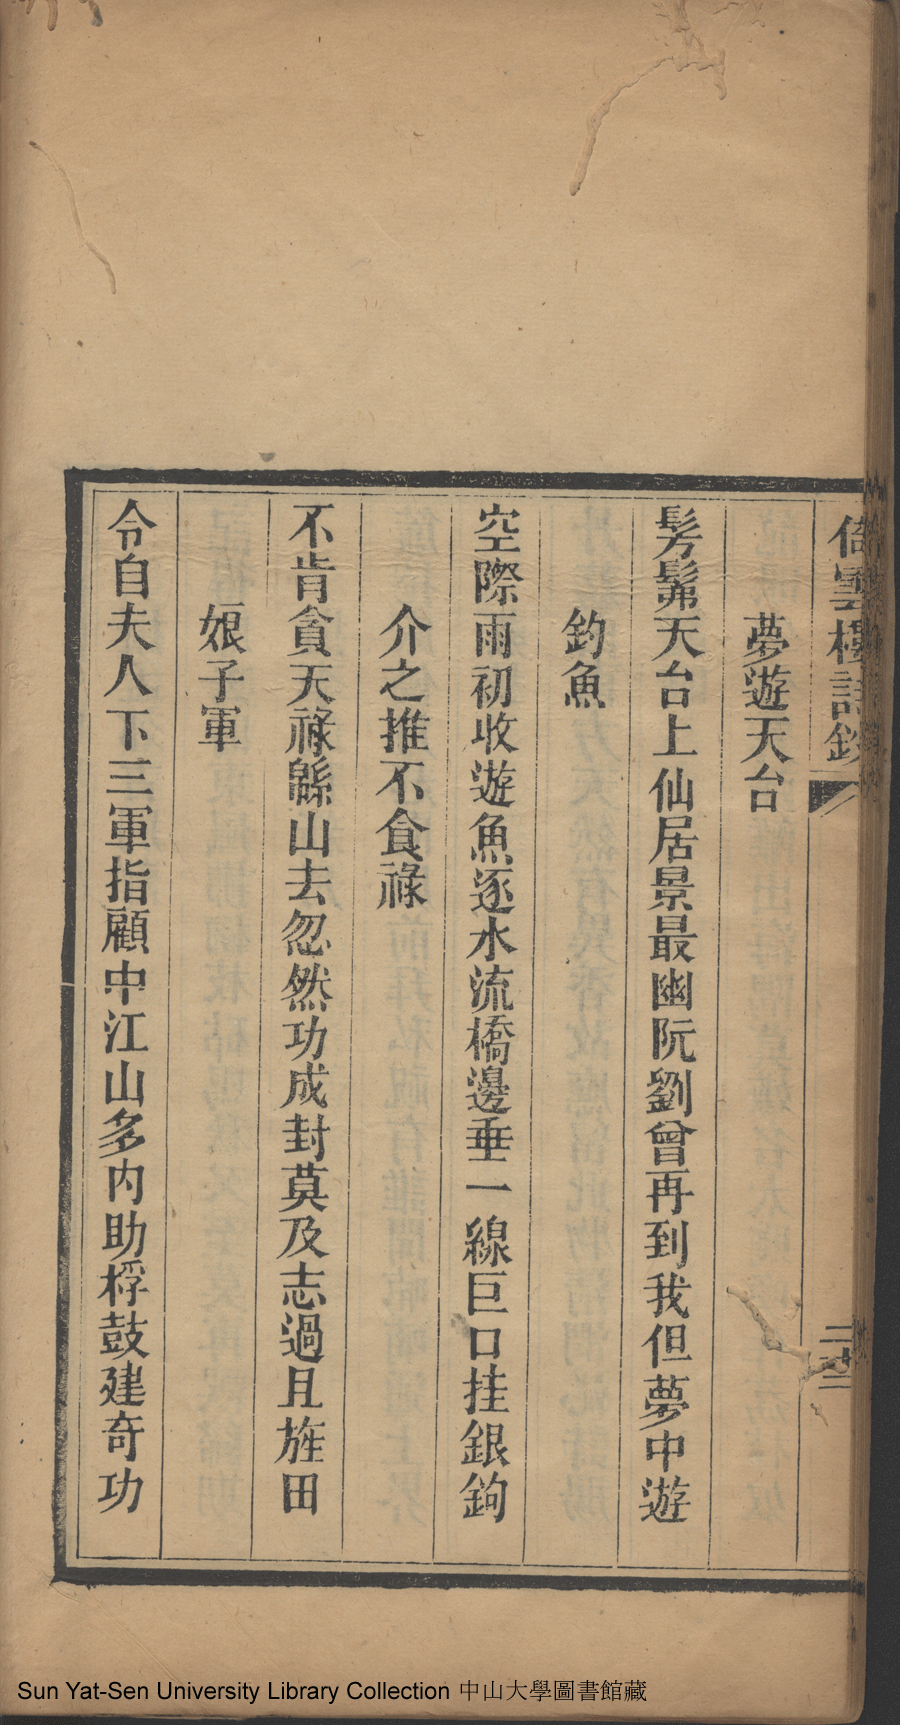 倚雲樓詩鈔
夢遊天台
髣髴天台上仙居景最幽阮劉曾再到我但夢中遊
釣魚
空際雨初收遊魚逐水流橋邊垂一線巨口挂銀鉤
介之推不食祿
不肯貪天祿緜山去忽然功成封莫及志過且旌田
娘子軍
令自夫人下三軍指顧中江山多內助桴鼓建奇功
Sun Yat-Sen University Library Collection 中山大學圖書館藏